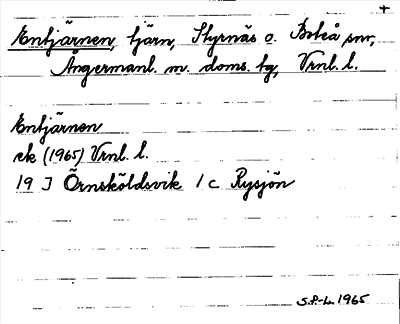 +
Entjärnen, tjärn, Styrnäs o. Boteå snr,
Ångermanl. m. doms. hg, Vrnl. l.
Entjärnen
ek (1965) Vrnl. l.
19 J Örnsköldsvik 1 c Rysjön
S.P.-L. 1965